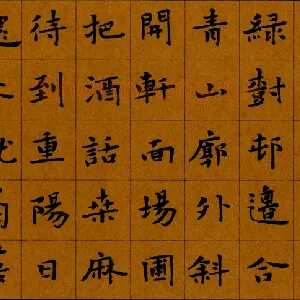 綠樹邨邊合
青山廓外斜
開軒面場圃
把酒話桒麻
待到重陽日